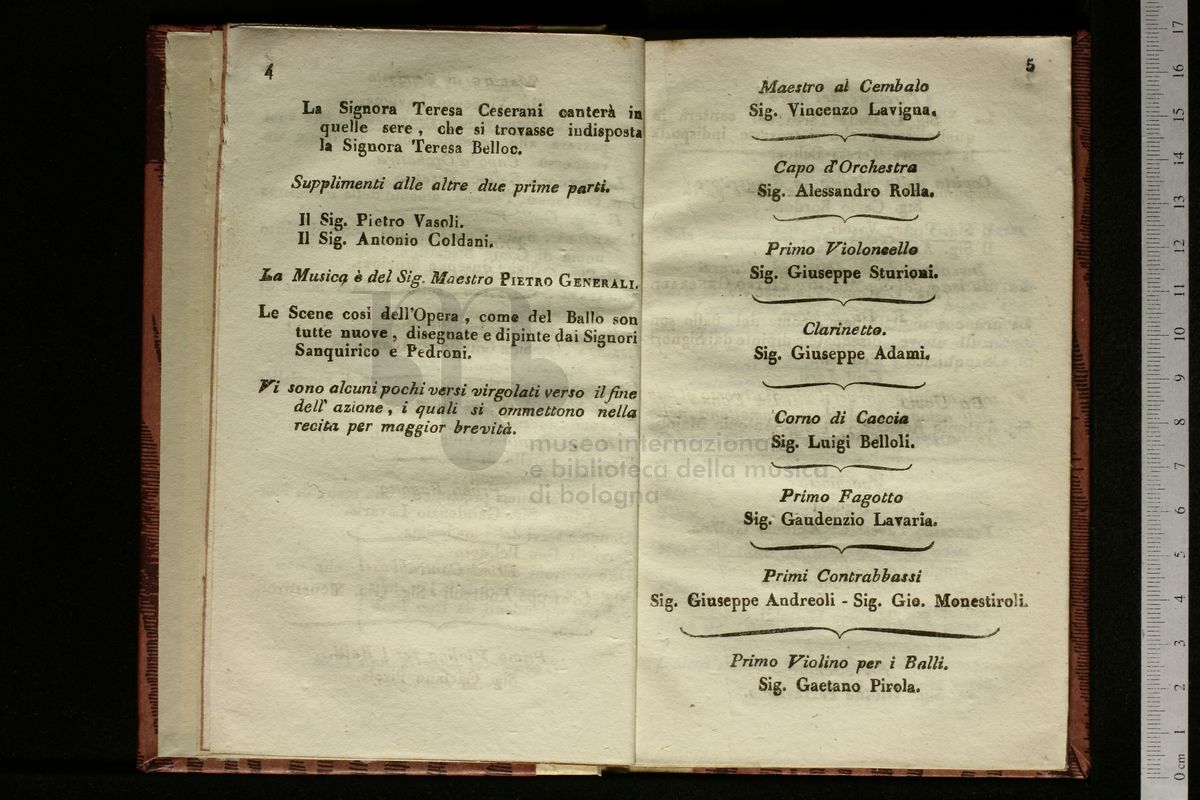 4
La Signora Teresa Ceserani canterà in
quelle sere, che si trovasse indisposta
la Signora Teresa Belloc.
Supplimenti alle altre due prime parti.
Il Sig. Pietro Vasoli.
Il Sig. Antonio Coldani.
La Musica è del Sig. Maestro PIETRO GENERALI.
Le Scene così dell'Opera, come del Ballo son
tutte nuove, disegnate e dipinte dai Signori
Sanquirico e Pedroni.
Vi sono alcuni pochi versi virgolati verso il fine
dell' azione, i quali si ommettono nella
recita per maggior brevità.
5
Maestro al Cembalo
Sig. Vincenzo Lavigna.
Capo d'Orchestra
Sig. Alessandro Rolla.
Primo Violoncello
Sig. Giuseppe Sturioni.
Clarinetto.
Sig. Giuseppe Adami.
Corno di Caccia
Sig. Luigi Belloli.
Primo Fagotto
Sig. Gaudenzio Lavaria.
Primi Contrabbassi
Sig. Giuseppe Andreoli - Sig. Gio. Monestiroli.
Primo Violino per i Balli.
Sig. Gaetano Pirola.
museo internazionale
e biblioteca della musica
di bologna
0 cm 1 2 3 4 5 6 7 8 9 10 11 12 13 14 15 16 17